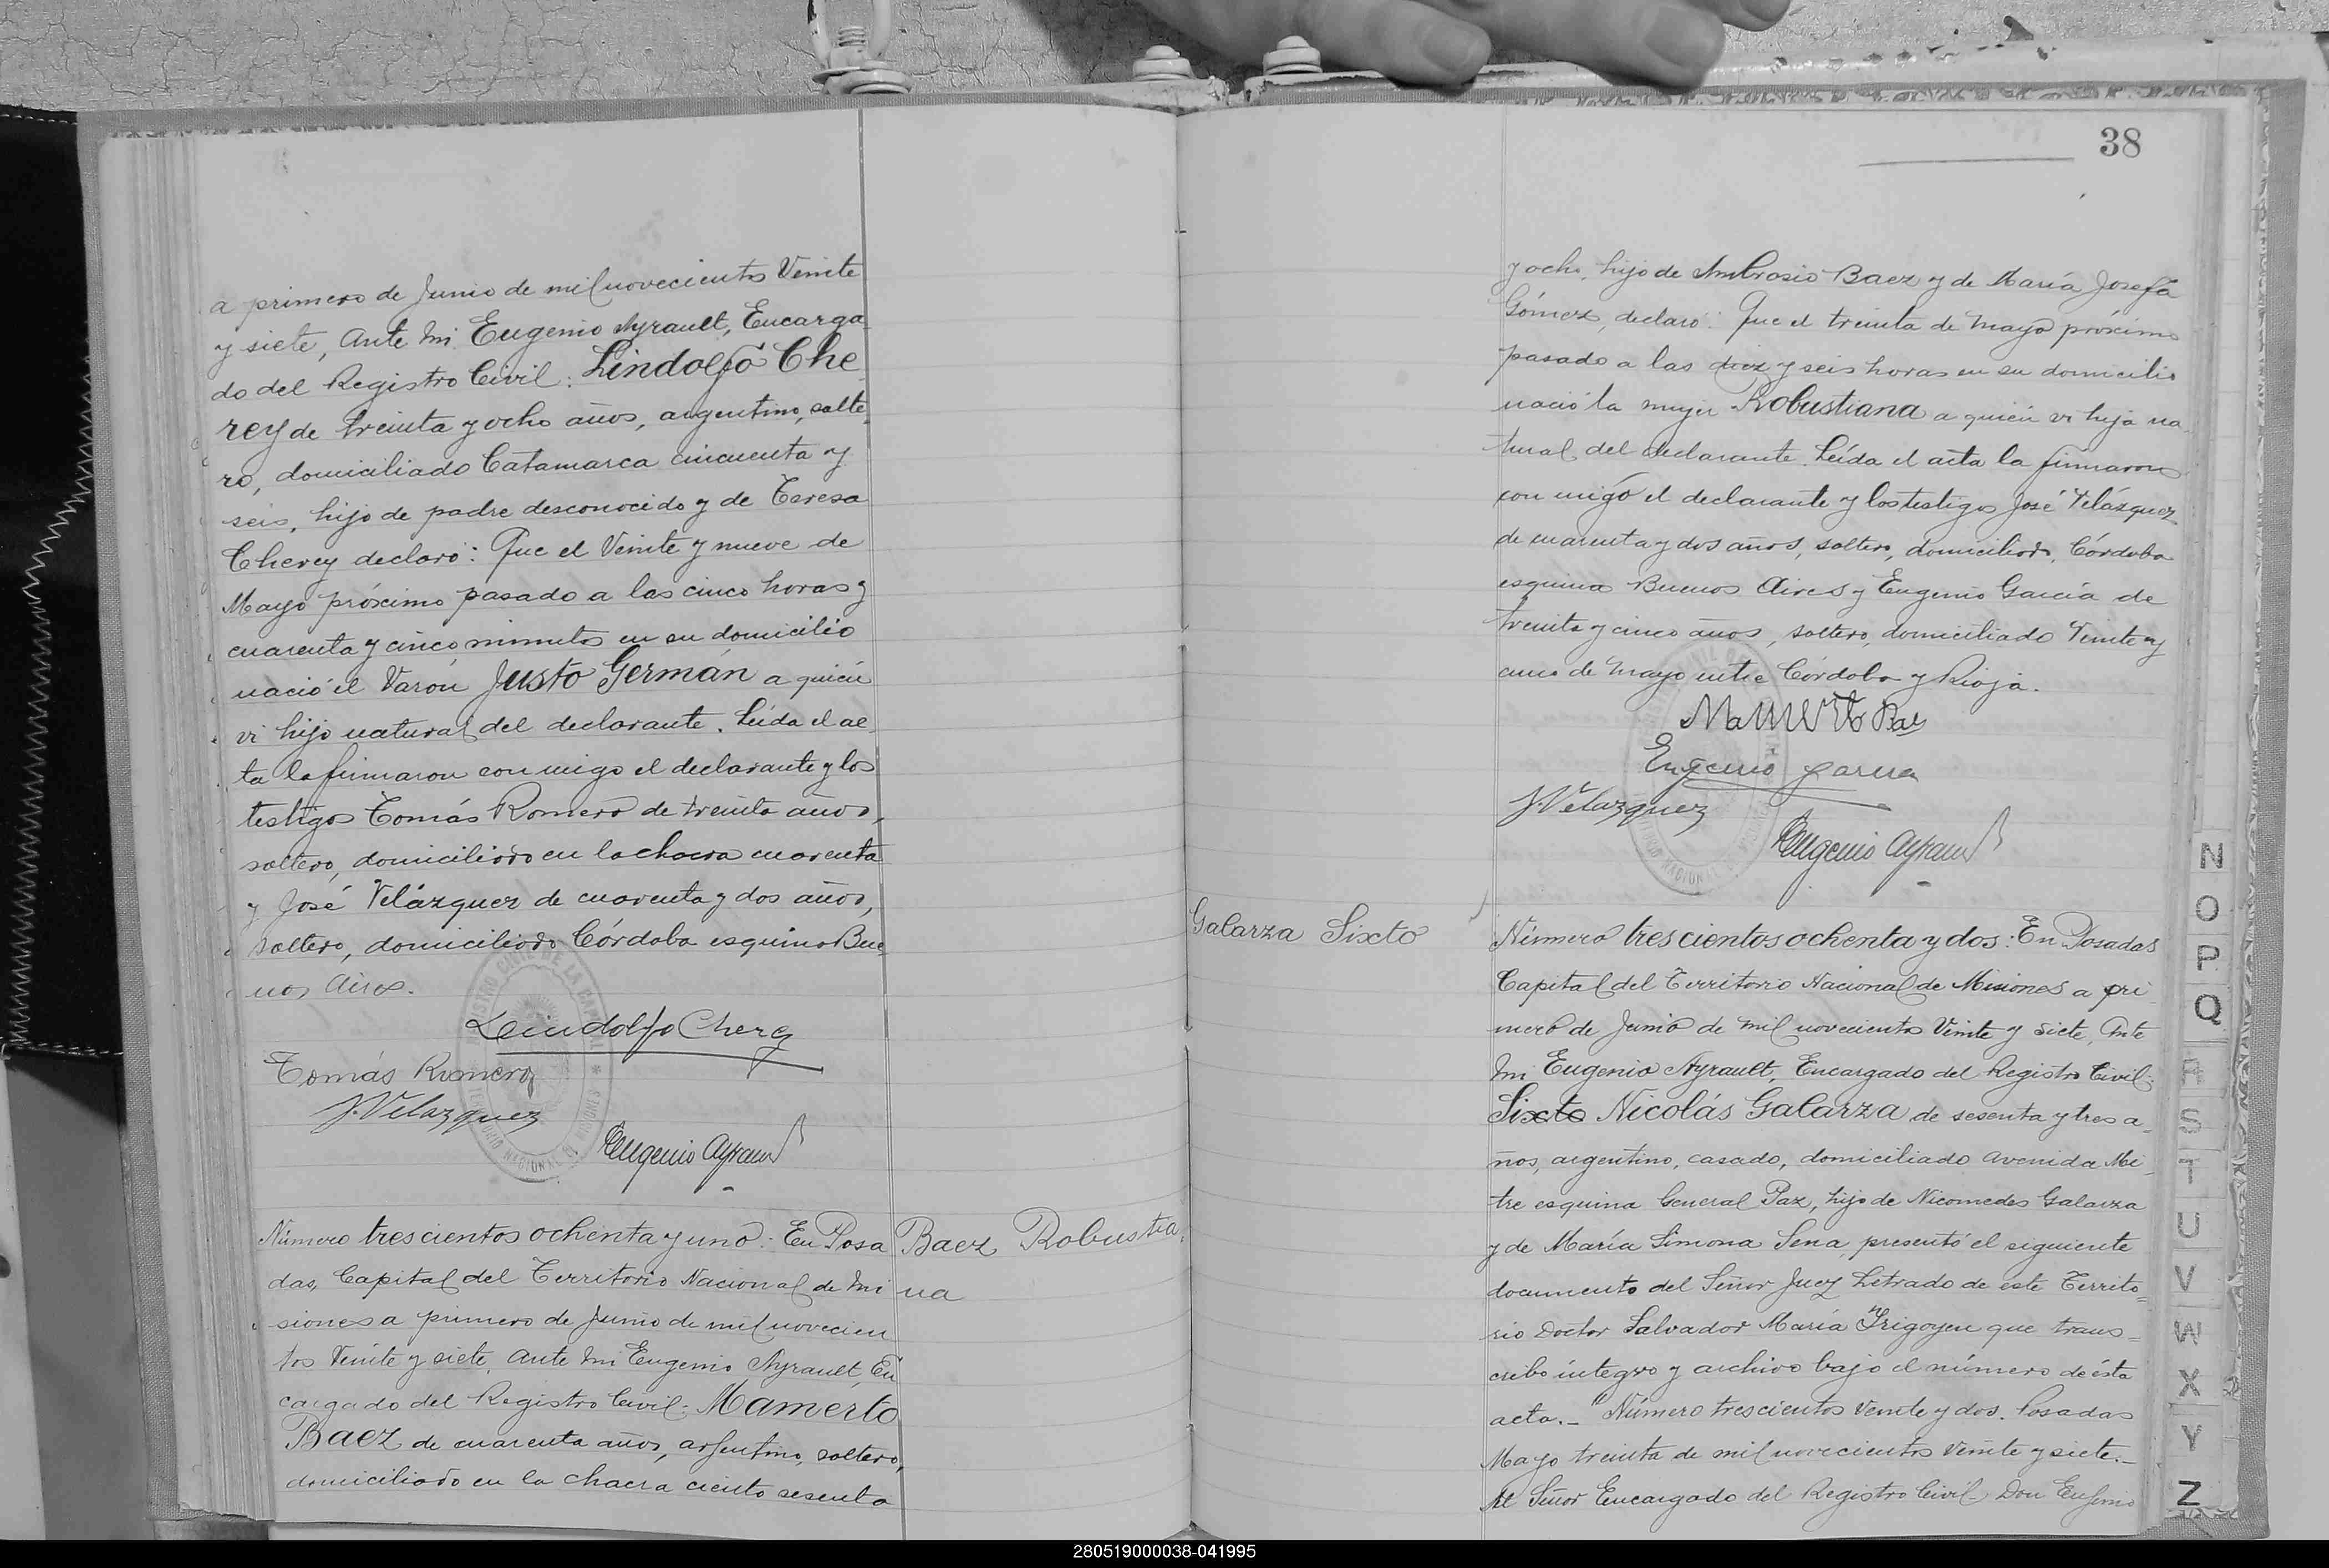 a primero de Junio de mil novecientos Veinte
y siete, Ante Mi Eugenio Ayrault, Encarga
do del Registro Civil: Lindolfo Che
rey de treinta y ocho años, argentino, solte
ro, domiciliado Catamarca cincuenta y
seis, hijo de padre desconocido y de Teresa
Cherey declaró: Que el Veinte y nueve de
Mayo próximo pasado a las cinco horas y
cuarenta y cinco minutos en su domicilio
nació el Varón Justo Germán a quien
vi hijo natural del declarante. Leída el ac
ta la firmaron con migo el declarante y los
testigos Tomás Romero de treinta años,
soltero, domiciliado en la chacra cuarenta
y José Velázquez de cuarenta y dos años,
soltero, domiciliado Córdoba esquina Bue
nos Aires.
Leindolfo Cherey
Tomás Romero
J. Velazquez
Eugenio Ayrault
REGISTRO CIVIL DE LA CAPITAL
TERRITORIO NACIONAL DE MISIONES
Número trescientos ochenta y uno: En Posa
das, Capital del Territorio Nacional de Mi
siones a primero de Junio de mil novecien
tos Veinte y siete, Ante Mi Eugenio Ayrault, En
cargado del Registro Civil: Mamerto
Baez de cuarenta años, argentino, soltero,
domiciliado en la chacra ciento sesenta
Baez Robustia
na
38
y ocho, hijo de Ambrosio Baez y de María Josefa
Gómez, declaró: Que el treinta de Mayo próximo
pasado a las diez y seis horas en su domicilio
nació la mujer Robustiana a quien vi hija na
tural del declarante. Leída el acta la firmaron
con migo el declarante y los testigos José Velázquez
de cuarenta y dos años, soltero, domiciliado Córdoba
esquina Buenos Aires y Eugenio García de
treinta y cinco años, soltero, domiciliado Veinte y
cinco de Mayo entre Córdoba y Rioja.
Mamerto Baes
Eugenio Garcia
J. Velazquez
Eugenio Ayrault
Galarza Sixto
Número trescientos ochenta y dos: En Posadas
Capital del Territorio Nacional de Misiones a pri
mero de Junio de mil novecientos Veinte y siete, Ante
Mi Eugenio Ayrault, Encargado del Registro Civil:
Sixto Nicolás Galarza de sesenta y tres a
ños, argentino, casado, domiciliado Avenida Mi
tre esquina General Paz, hijo de Nicomedes Galarza
y de María Simona Sena, presentó el siguiente
documento del Señor Juez Letrado de este Territo
rio Doctor Salvador María Irigoyen que trans
cribo íntegro y archivo bajo el número de ésta
acta.- "Número trescientos Veinte y dos. Posadas
Mayo treinta de mil novecientos Veinte y siete.-
Al Señor Encargado del Registro Civil Don Eugenio
N
O
P
Q
R
S
T
U
V
W
X
Y
Z
280519000038-041995